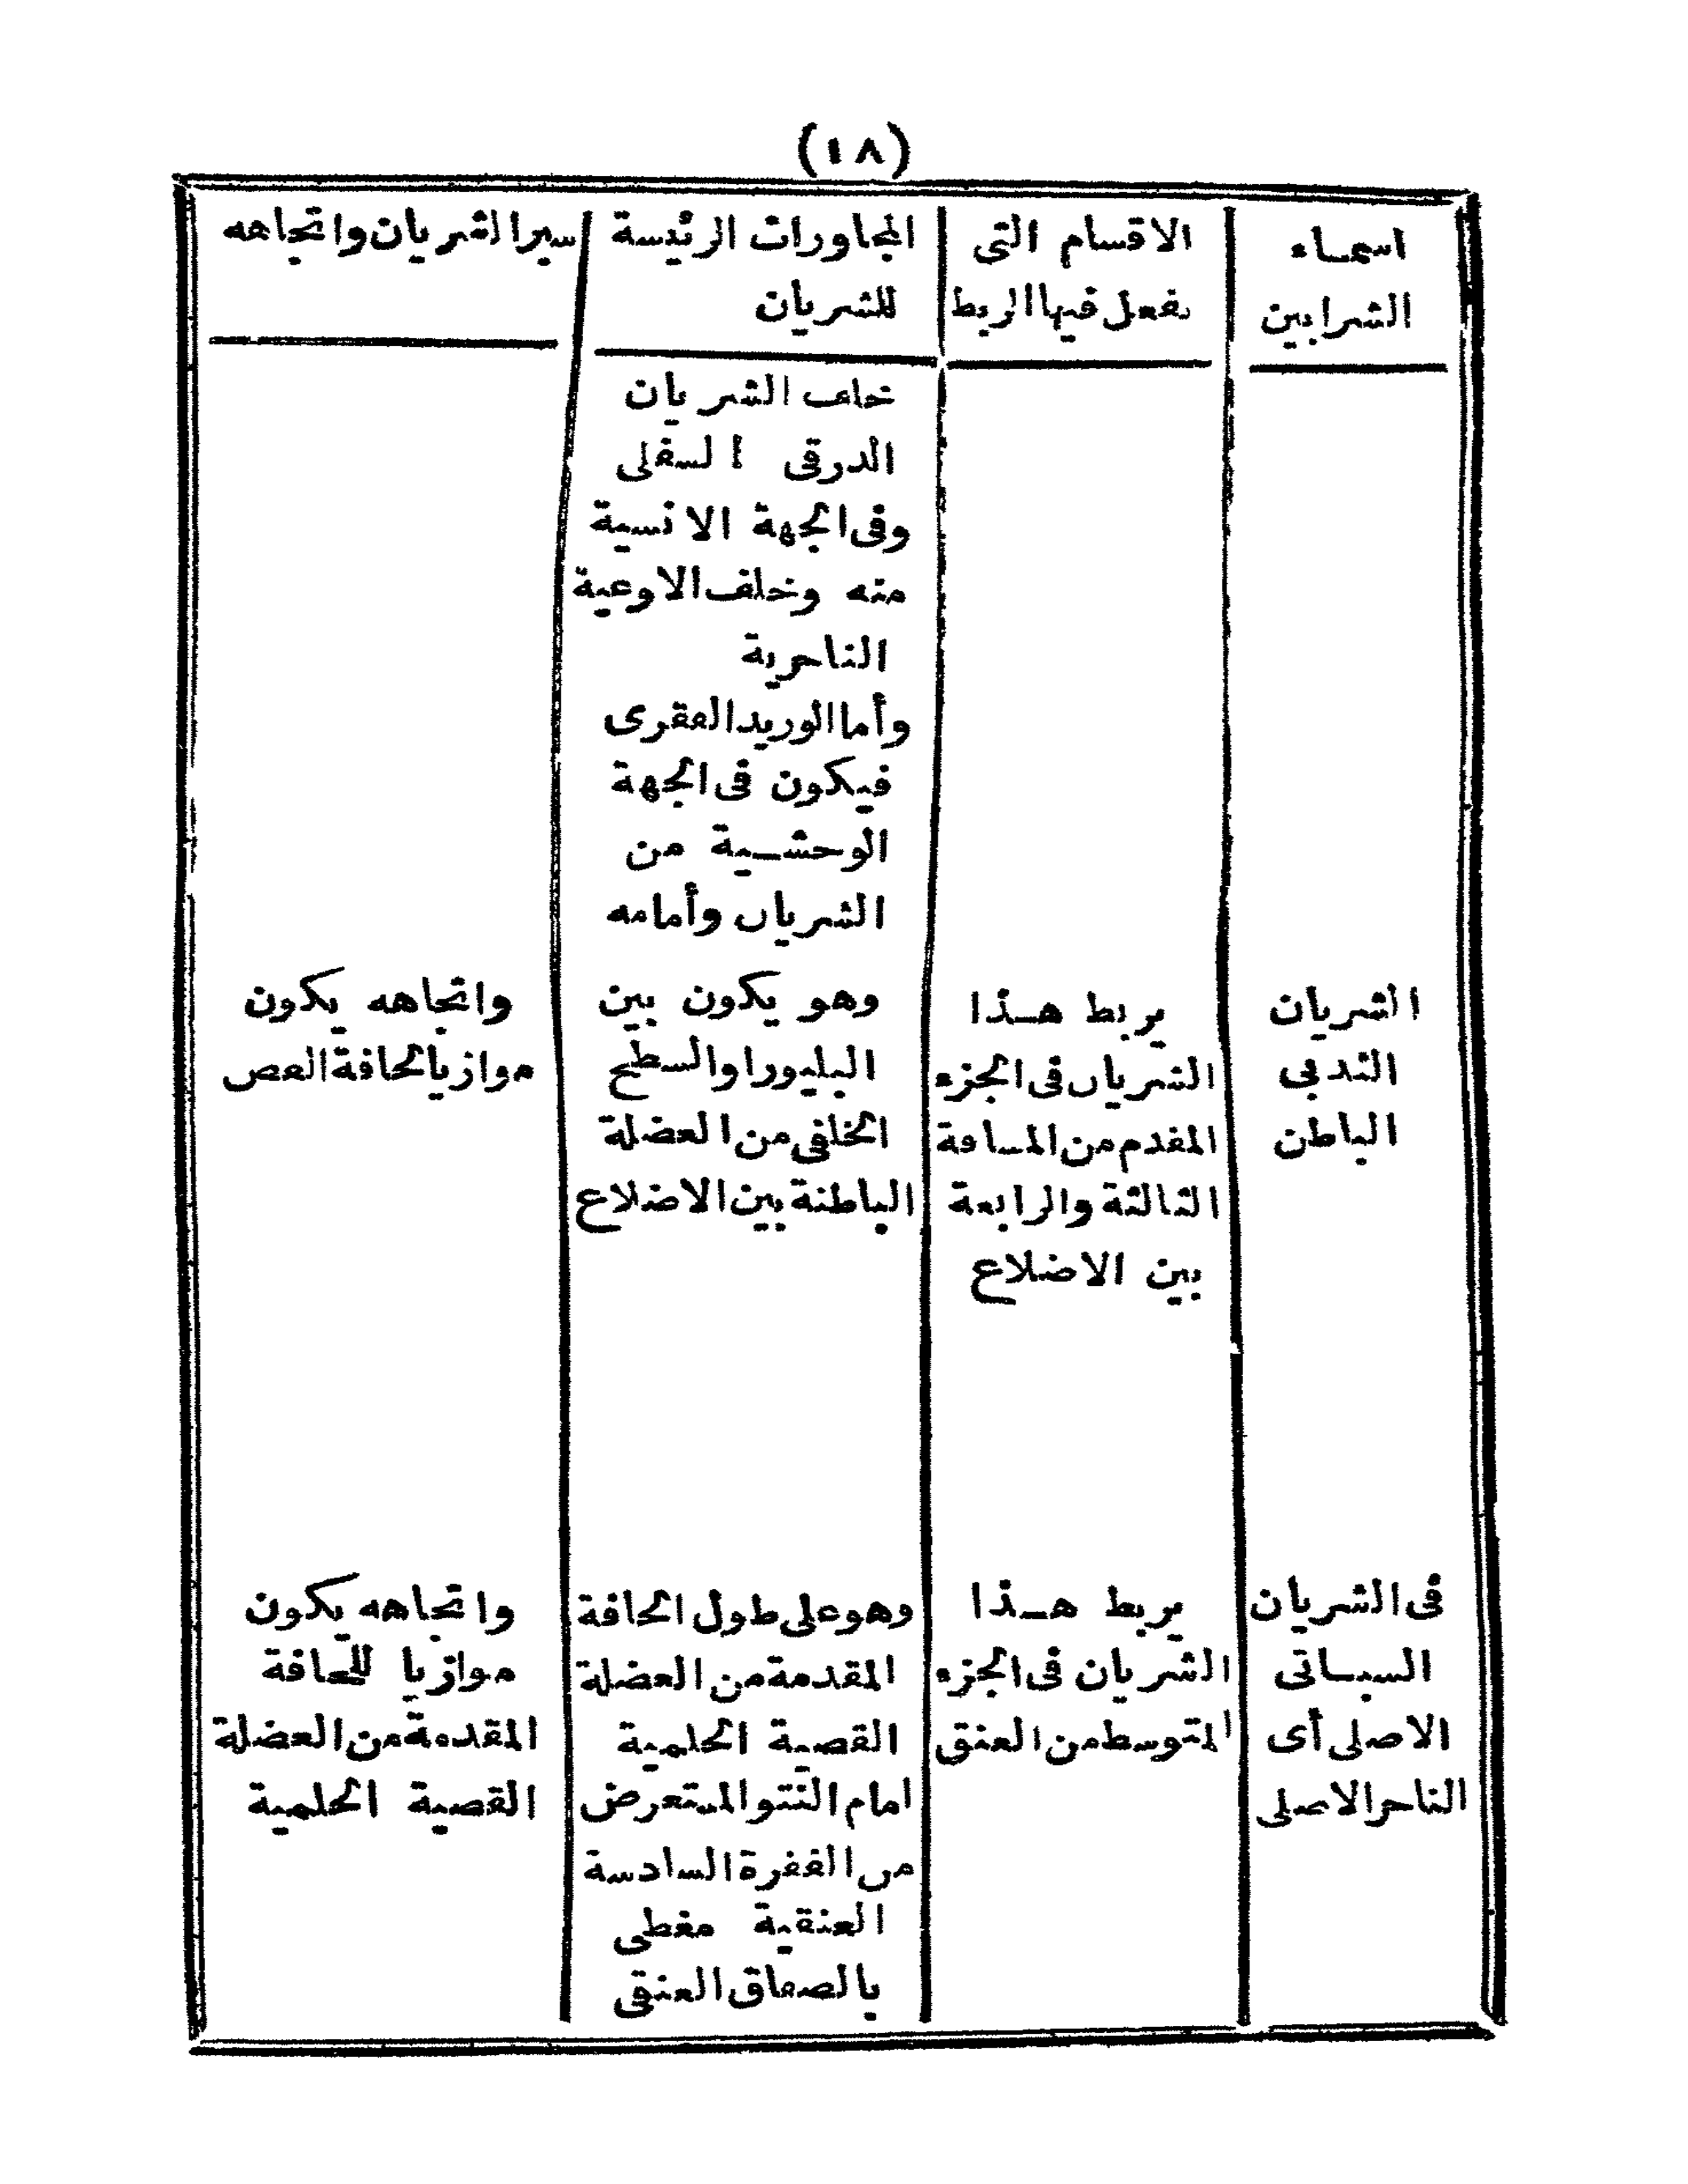 (١٨)
اسمـاء
الشرايين
الاقسام التى
يفعل فيها الربط
المجاورات الرئيسة
للشريان
سير الشريان واتجاهه
خلف الشريان
الدرقى السفلى
وفى الجهة الانسية
منه وخلف الاوعية
الناحرية
وأما الوريد الفقرى
فيكون فى الجهة
الوحشـية من
الشريان وأمامه
الشريان
الثديى
الباطن
يربط هـذا
الشريان فى الجزء
المقدم من المسافة
الثالثة والرابعة
بين الاضلاع
وهو يكون بين
البليورا والسطح
الخلفى من العضلة
الباطنة بين الاضلاع
واتجاهه يكون
موازيا لحافة القص
فى الشريان
السبـاتى
الاصلى أى
الناحر الاصلى
يربط هـذا
الشريان فى الجزء
المتوسط من العنق
وهو على طول الحافة
المقدمة من العضلة
القصية الحلمية
امام النتو المستعرض
من الفقرة السادسة
العنقية مغطى
بالصفاق العنقى
واتجاهه يكون
موازيا للحافة
المقدمة من العضلة
القصية الحلمية